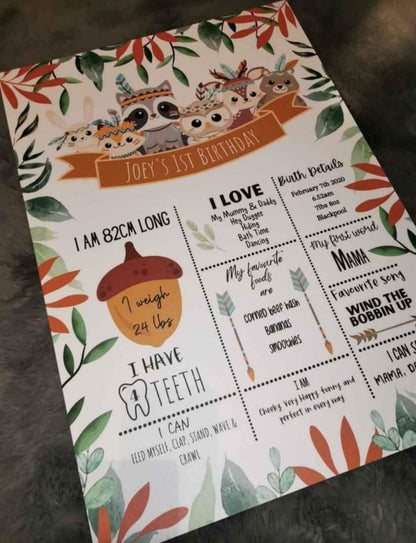 JOEY'S 1ST BIRTHDAY
I AM 82CM LONG
I weigh
24 lbs
I HAVE
4 TEETH
I CAN
FEED MYSELF, CLAP, STAND, WAVE &
CRAWL
I LOVE
My Mummy & Daddy
Hey Duggee
Bath Time
Dancing
My favourite
foods
are
corned beef hash
Bananas
smoothies
I AM
Cheeky, Very happy, funny and
perfect in every way
Birth Details
February 7th 2020
6.52am
7lbs 8oz
Blackpool
My first word
MAMA
Favourite song
WIND THE
BOBBIN UP
I CAN S
MAMA, DA